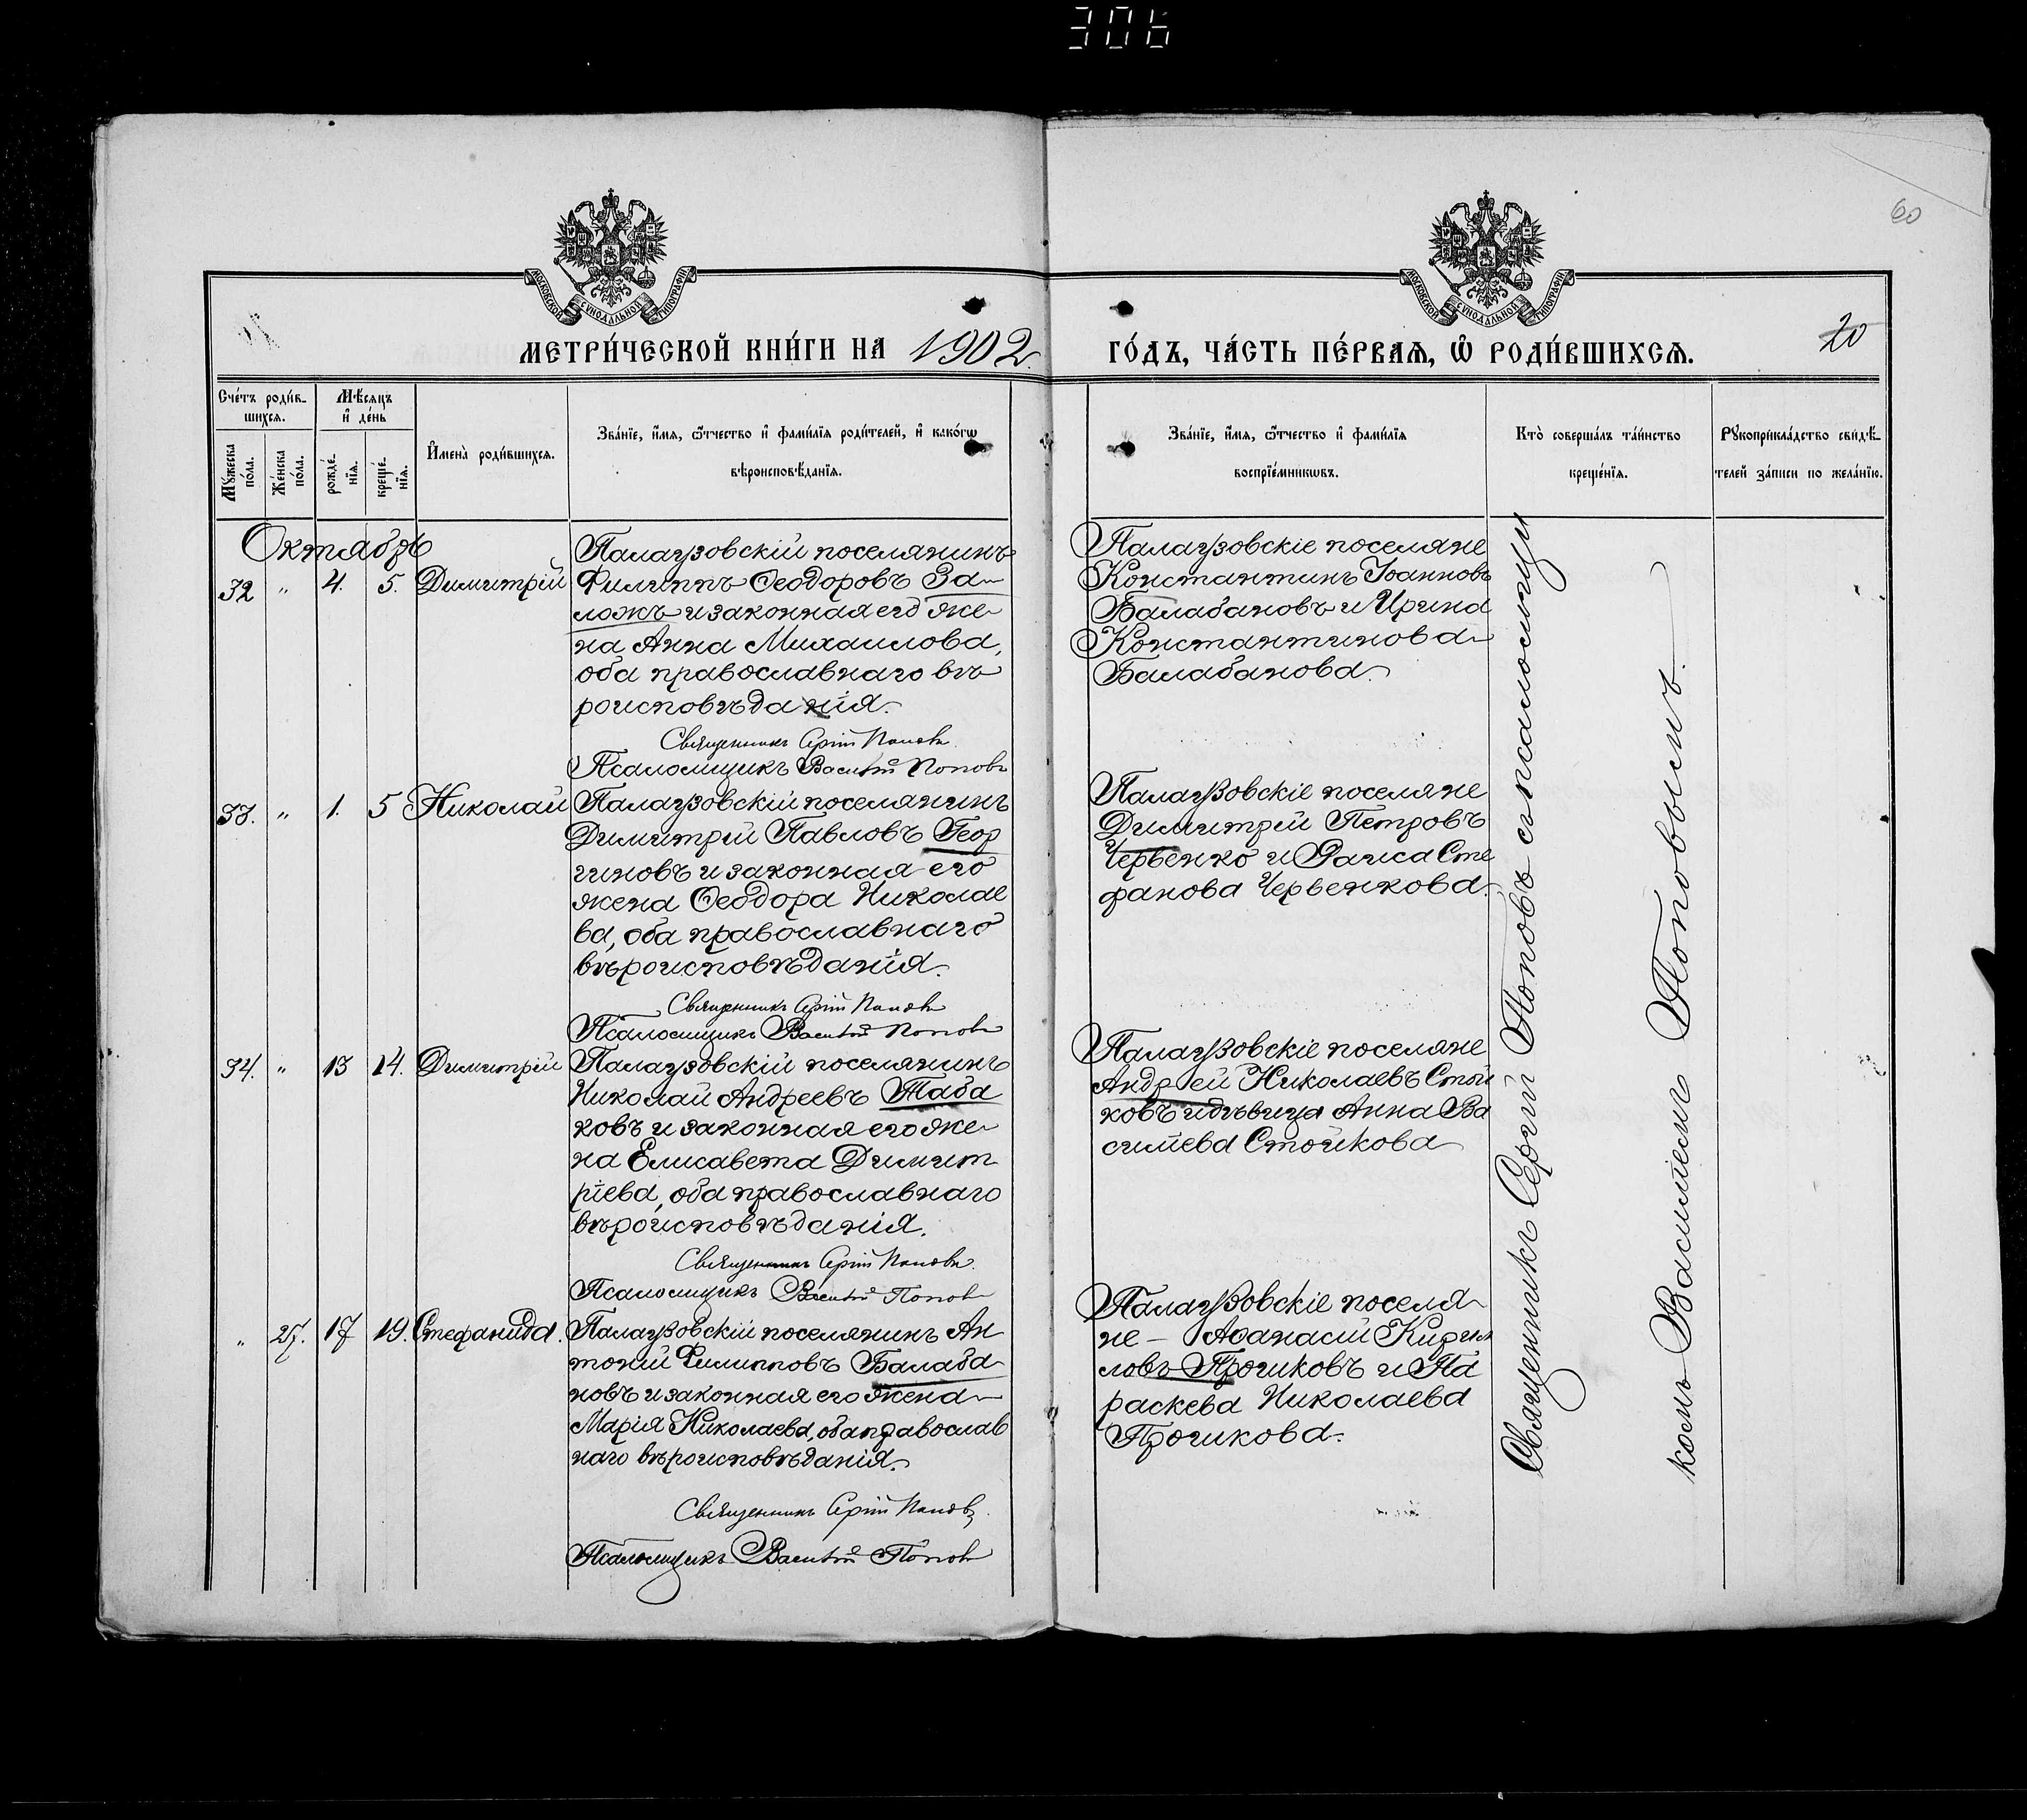 306
60
МОСКОВСКОЙ СѴНОДАЛЬНОЙ ТИПОГРАФІИ
МОСКОВСКОЙ СѴНОДАЛЬНОЙ ТИПОГРАФІИ
МЕТРИ́ЧЕСКОЙ КНИ́ГИ НА 1902 г.
ГО́ДЪ, ЧА́СТЬ ПЕ́РВАѦ, Ѽ РОДИ́ВШИХСѦ.
20
Сче́тъ роди́в-
шихсѧ.
Мѣ́сѧцъ
и҆ де́нь
Мꙋ́жеска
по́ла.
Же́нска
по́ла.
рожде́-
нїѧ.
креще́-
нїѧ.
И҆мена̀ роди́вшихсѧ.
Зва́нїе, и҆́мѧ, ѻ҆́тчество и҆ фами́лїѧ роди́телей, и҆ како́гѡ
вѣроисповѣ́данїѧ.
Зва́нїе, и҆́мѧ, ѻ҆́тчество и҆ фами́лїѧ
воспрїе́мникѡвъ.
Кто̀ соверша́лъ та́инство
креще́нїѧ.
Рꙋкоприкла́дство свидѣ́-
телей за́писи по жела́нїю.
Октябрь
32 " 4. 5. Димитрій
Палаузовскій поселянинъ
Филиппъ Ѳеодоровъ За-
ложъ и законная его же-
на Анна Михаилова,
оба православнаго вѣ
роисповѣданія.
Священникъ Сергій Поповъ
Псаломщикъ Василій Поповъ
Палаузовскіе поселяне
Константинъ Іоанновъ
Балабановъ и Ирина
Константинова
Балабанова.
33. " 1. 5 Николай
Палаузовскій поселянинъ
Димитрій Павловъ Геор
гиновъ и законная его
жена Ѳеодора Николае
ва, оба православнаго
вѣроисповѣданія.
Священникъ Сергій Поповъ
Псаломщикъ Василій Поповъ
Палаузовскіе поселяне
Димитрій Петровъ
Червенко и Раиса Сте
фанова Червенкова.
34. " 13 14. Димитрій
Палаузовскій поселянинъ
Николай Андреевъ Таба
ковъ и законная его же
на Елисавета Димит
ріева, оба православнаго
вѣроисповѣданія.
Священникъ Сергій Поповъ.
Псаломщикъ Василій Поповъ
Палаузовскіе поселяне
Андрей Николаевъ Стой
ковъ и дѣвица Анна Ва
силіева Стойкова
" 27. 17 19. Стефанида.
Палаузовскій поселянинъ Ан
тоній Филипповъ Балаба
новъ и законная его жена
Марія Николаева, оба православ
наго вѣроисповѣданія.
Священникъ Сергій Поповъ.
Псаломщикъ Василій Поповъ
Палаузовскіе поселя
не - Аѳанасій Кирил
ловъ Прочиковъ и Па
раскева Николаева
Прочикова.
Священникъ Сергій Поповъ съ псаломщи
комъ Василіемъ Поповымъ.